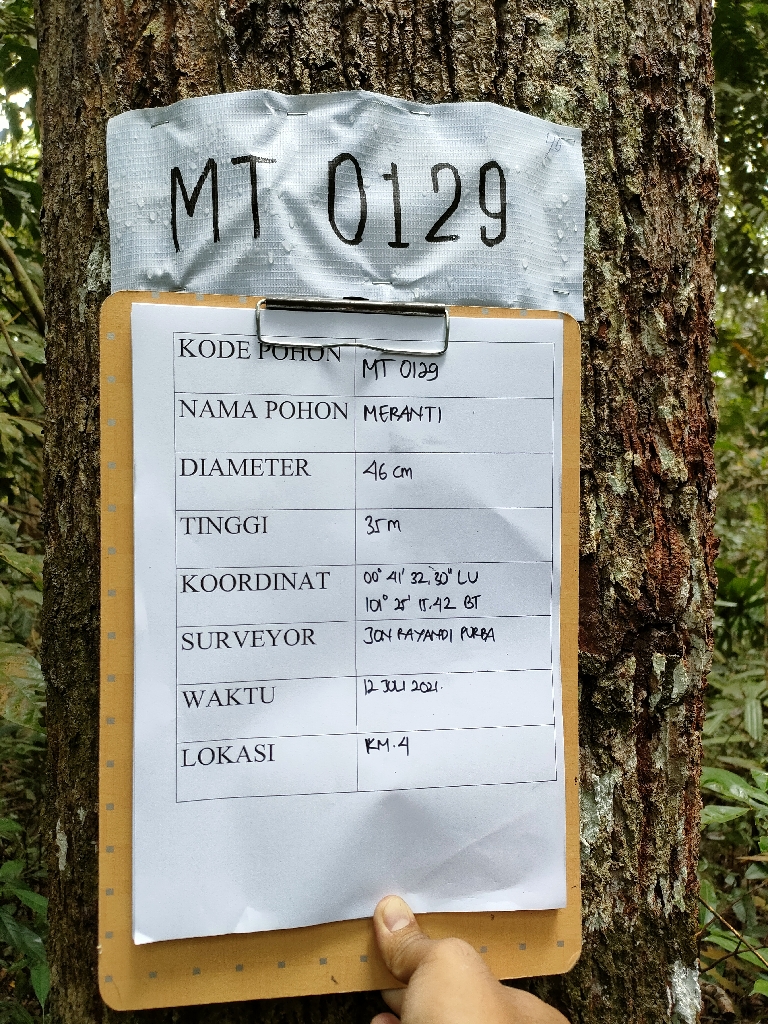 MT 0129
KODE POHON MT 0129
NAMA POHON MERANTI
DIAMETER 46 cm
TINGGI 35 m
KOORDINAT 00° 41' 32,30" LU
101° 25' 15.42 BT
SURVEYOR JON RAYANDI PURBA
WAKTU 12 JULI 2021.
LOKASI KM.4